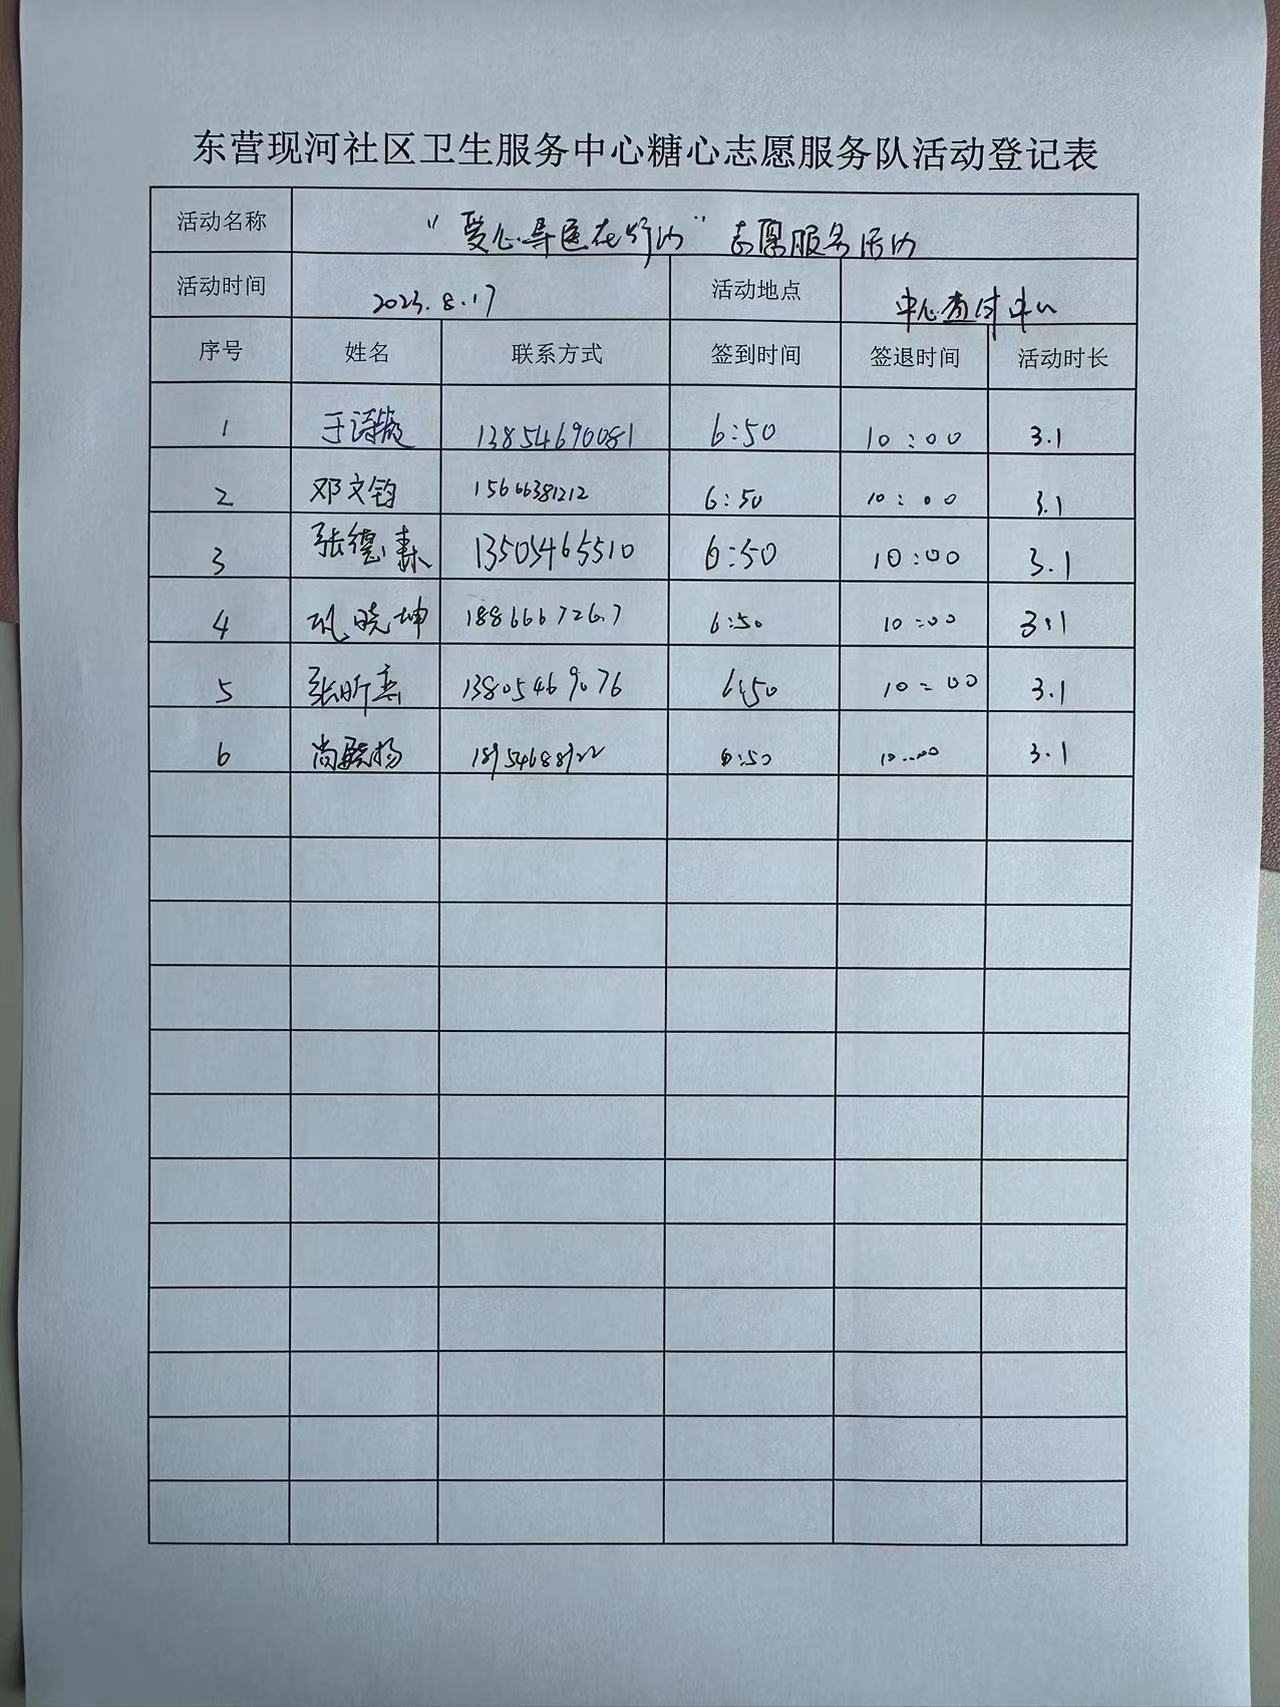 东营现河社区卫生服务中心糖心志愿服务队活动登记表
活动名称 “爱心导医在行动”志愿服务活动
活动时间 2023.8.17 活动地点 中心查体中心
序号 姓名 联系方式 签到时间 签退时间 活动时长
1 于诗璇 13854690081 6:50 10:00 3.1
2 邓文钧 15666381212 6:50 10:00 3.1
3 张德森 13505465510 6:50 10:00 3.1
4 晓坤 1886667267 6:50 10:00 3.1
5 张昕 13805469076 6:50 10:00 3.1
6 尚杨 18954688922 6:50 10:00 3.1